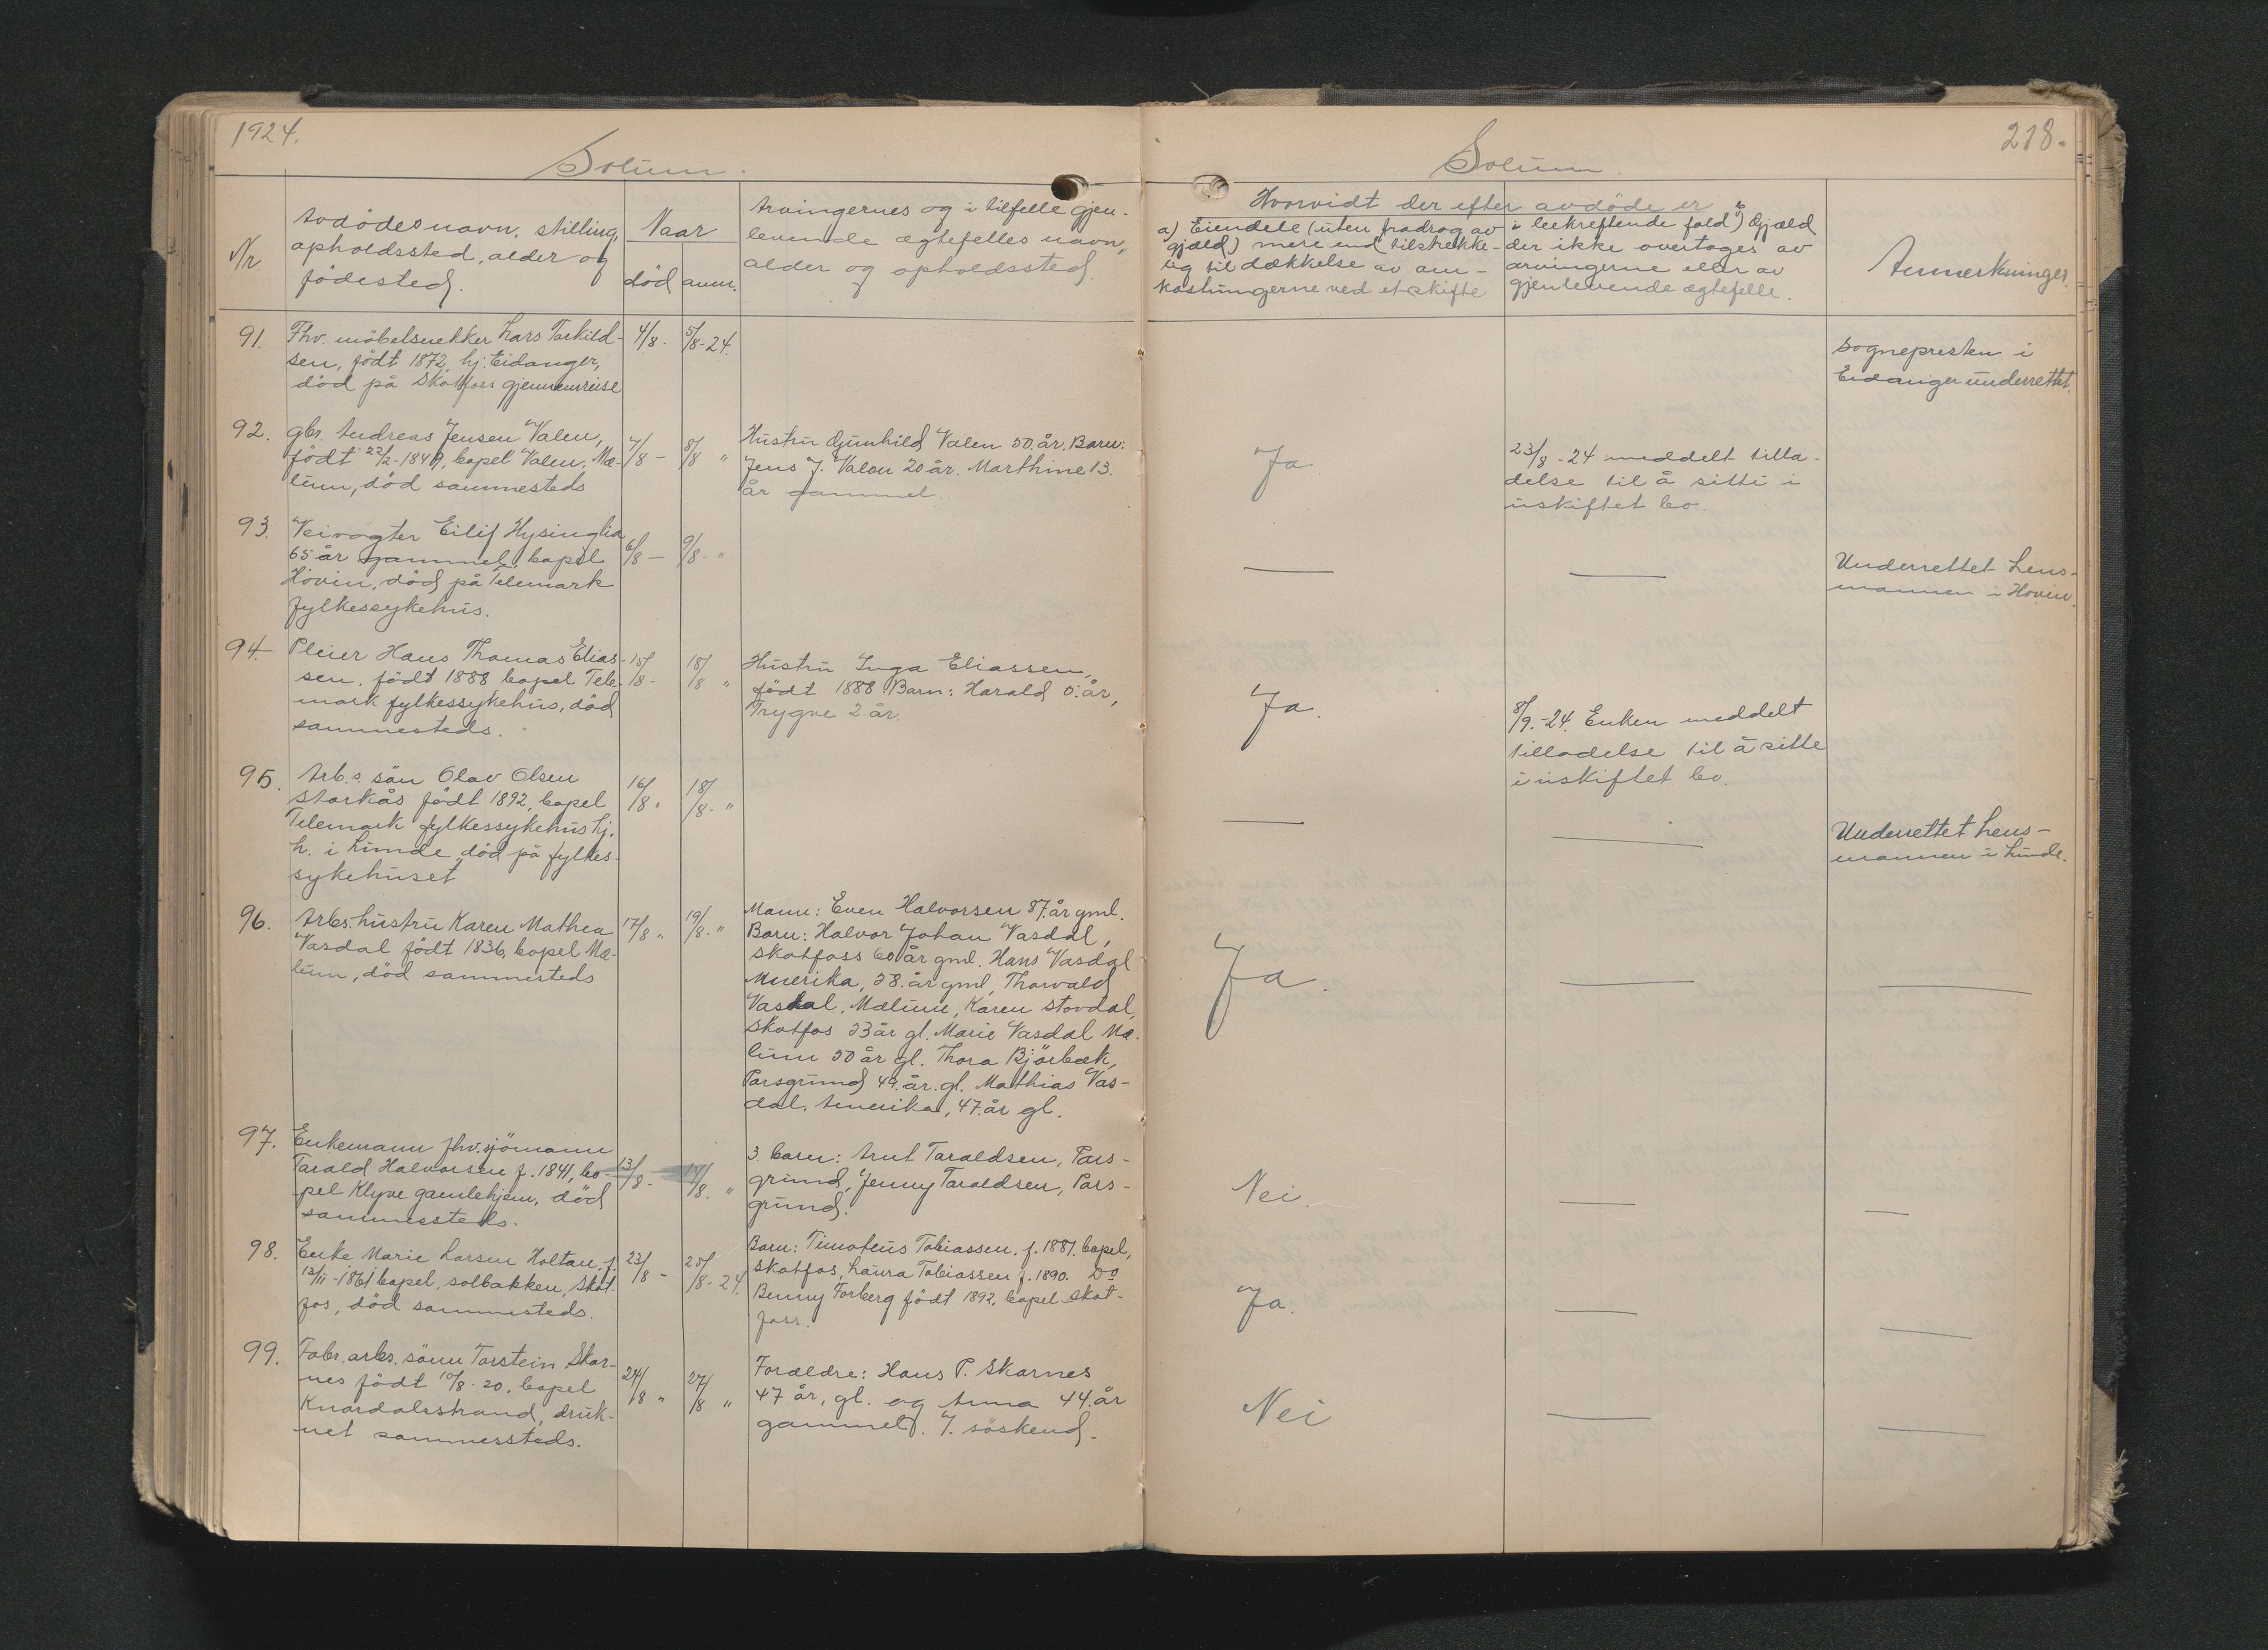 1924.
Solum.
Nr.
Avdödes navn, stilling,
opholdssted, alder og
födested.
Naar
död
anm.
Arvingernes og i tilfelle gjen-
levende ægtefelles navn,
alder og opholdssted.
91.
Fhv. möbelsnekker Lars Torkild-
sen, födt 1872, hj. Eidanger,
död på Skotfoss gjennemreise
4/8.
5/8-24.
92.
gbr. Andreas Jensen Valen,
födt 22/2-1849, bopel Valen, Mæ-
lum, död sammesteds
7/8 -
8/8 "
Hustru Gunhild Valen 50 år. Barn:
Jens J. Valen 20 år. Marthine 13.
år gammel.
93.
Veivogter Eilif Hysinglia
65 år gammel, bopel
Hovin, död på Telemark
fylkessykehus.
6/8 -
9/8. "
94.
Pleier Hans Thomas Elias-
sen, födt 1888 bopel Tele-
mark fylkessykehus, död
sammesteds.
15/8 -
18/8 "
Hustru Inga Eliassen,
födt 1888. Barn: Harald 5. år,
Trygve 2 år.
95.
Arb.s. sön Olav Olsen
Storkås födt 1892, bopel
Telemark fylkessykehus hj.
h. i Lunde, död på fylkes-
sykehuset
16/8 "
18/8 - "
96.
Arbs. hustru Karen Mathea
Vasdal födt 1836, bopel Mæ-
lum, död sammesteds
17/8 "
19/8. "
Mann: Even Halvorsen 87. år gml.
Barn: Halvor Johan Vasdal,
Skotfoss 60 år gml. Hans Vasdal
Amerika, 58. år gml, Thorvald
Vasdal, Mælum, Karen Stovdal,
Skotfos 53 år gl. Marie Vasdal Mæ-
lum 50 år gl. Thora Björbæk,
Porsgrund 49. år. gl. Mathias Vas-
dal, Amerika, 47. år gl.
97.
Enkemann fhv. sjömann
Tarald Halvorsen f. 1841, bo-
pel Klyve gamlehjem, död
sammesteds.
13/8 -
14/8. "
3. barn: Anut Taraldsen, Pors-
grund, Jenny Taraldsen, Pors-
grund.
98.
Enke Marie Larsen Holtan f.
12/11-1861 bopel, Solbakken, Skot-
fos, död sammesteds.
23/8 -
25/8-24.
Barn: Timoteus Tobiassen, f. 1881. bopel,
Skotfos, Laura Tobiassen f. 1890. Do
Benny Forberg födt 1892, bopel Skot-
foss.
99.
Fabr. arbs. sönn Torstein Skar-
nes födt 10/8-20, bopel
Knardalsstrand, druk-
net sammesteds.
24/8 "
27/8 "
Forældre: Hans P. Skarnes
47 år, gl. og Anna 44. år
gammel. 7. söskend.
218.
Solum.
Hvorvidt der efter avdöde er
a) Eiendele (uten fradrag av
gjæld) mere end tilstrekke-
lig til dækkelse av om-
kostningerne ved et skifte
i bekreftende fald b) Gjæld
der ikke overtages av
arvingerne eller av
gjenlevende ægtefelle.
Anmerkninger.
Sognepresten i
Eidanger underrettet.
Ja
23/8-24 meddelt tilla-
delse til å sitte i
uskiftet bo.
Underrettet Lens-
mannen i Hovin.
Ja.
8/9.-24. Enken meddelt
tilladelse til å sitte
i uskiftet bo.
Underrettet Lens-
mannen i Lunde.
Ja.
Nei.
Ja.
Nei